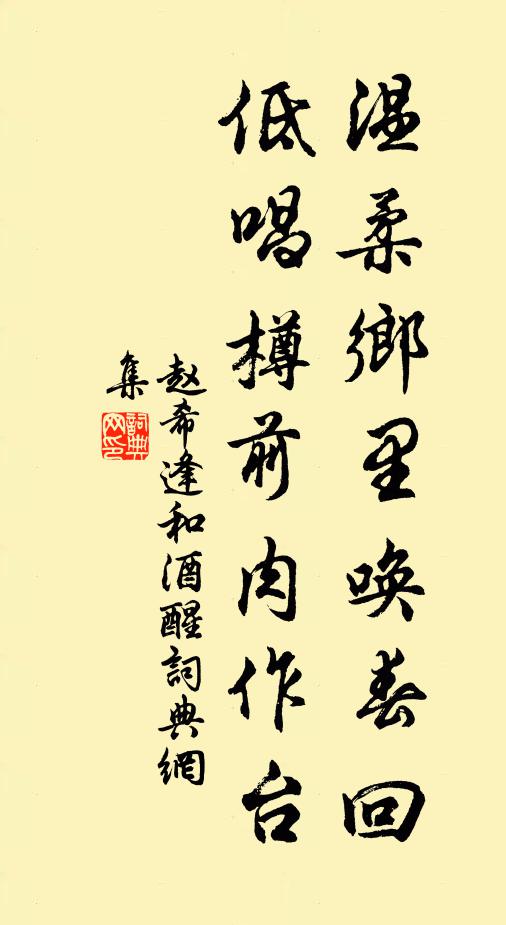 温柔鄉里唤春回
低唱樽前肉作台
赵希逢和酒醒詞典網
集
詞典
网印